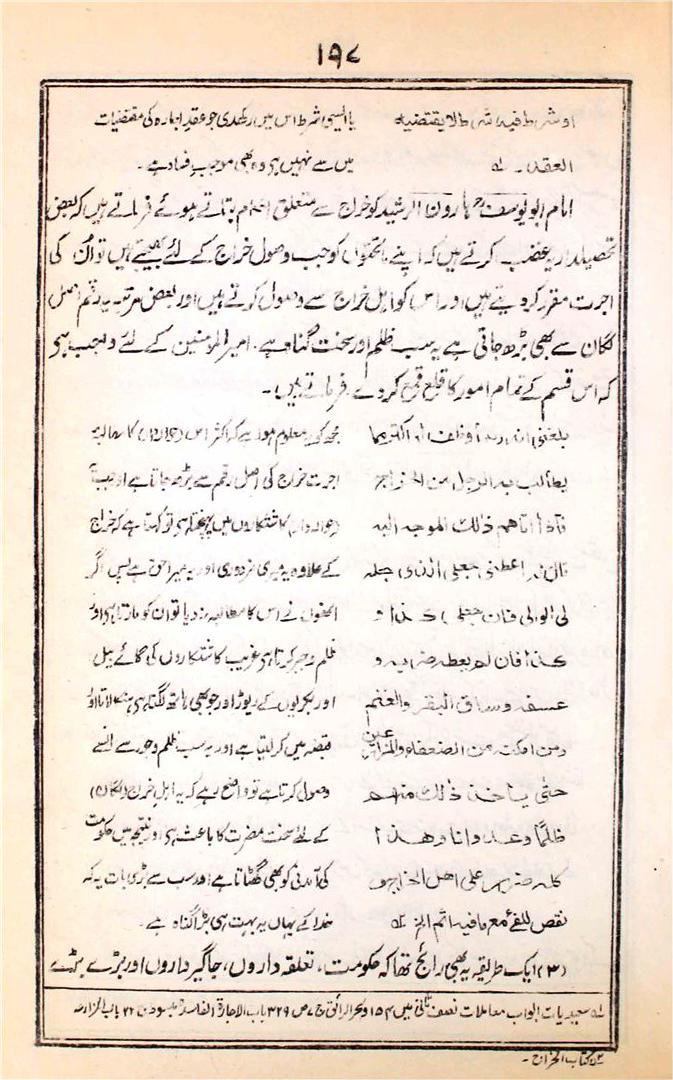 ۱۹۸
او شرط فیہ شرطا لا یقتضیہ
العقد۔ لہ
یا ایسی شرط اس میں رکھدی جو عقدِ اجارہ کی مقتضیات
میں سے نہیں ہی وہ بھی موجبِ فساد ہے۔
امام ابو یوسفؒ ہارون الرشید کو خراج سے متعلق احکام بتاتے ہوئے فرماتے ہیں کہ بعض
تحصیلدار یہ غضب کرتے ہیں کہ اپنے ماتحتوں کو جب وصول خراج کے لئے بھیجتے ہیں تو اُن کی
اجرت مقرر کردیتے ہیں اور اس کو اہل خراج سے وصول کرتے ہیں اور بعض مرتبہ یہ رقم اصل
لگان سے بھی بڑھ جاتی ہے یہ سب ظلم اور سخت گناہ ہے۔ امیر المومنین کے لئے واجب ہی
کہ اس قسم کے تمام امور کا قلع قمع کردے۔ فرماتے ہیں۔
بلغنی انہ اکثر مما
یطالب بہ الرجل من الخراج
فاذا اتاھم ذلک الموجہ الیہ
قال لہ اعطنی جعلی الذی جعلہ
لی الوالی فان جعلی کذا و
کذا فان لم یعطہ ضربہ و
عسفہ وساق البقر والغنم
ومن امکنہ من الضعفاء والمزارعین
حتیٰ یاخذ ذلک منھم
ظلمًا وعدوانا وھذا
کلہ ضرر علی اھل الخراج و
نقص للفئ مع ما فیہ اثم الخ لہ
مجھ کو یہ معلوم ہوا ہے کہ اکثر اس کا مطالبہ
اجرت خراج کی اصل رقم سے بڑھ جاتا ہے اور جب یہ
کاشتکاروں میں پہنچتا ہی تو کہتا ہے کہ خراج
کے علاوہ یہ میری مزدوری اور یہ میرا حق ہے پس اگر
انھوں نے اس کا مطالبہ نہ دیا تو ان کو مارتا ہی اور
ظلم و جبر کرتا ہی غریب کاشتکاروں کی گائے بیل
اور بکریوں کے ریوڑ اور جو بھی ہاتھ لگتا ہی ہنکا لاتا اور
قبضہ میں کرلیتا ہے اور یہ سب ظلم وجور سے اُنسے
وصول کرتا ہے تو واضح رہے کہ یہ اہل خراج (لگان)
کے لئے سخت مضرت کا باعث ہی اور نتیجہ میں حکومت
کی آمدنی کو بھی گھٹاتا ہے اور سب سے بڑی بات یہ کہ
خدا کے یہاں یہ بہت ہی بڑا گناہ ہے۔
(۳) ایک طریقہ یہ بھی رائج تھا کہ حکومت، تعلقہ داروں، جاگیرداروں اور بڑے بڑے
لہ سعیدیات ابواب معاملات نصف ثانی میں ۱۵۴ و بحر الرائق ج ۷ ص ۳۲۹ باب الاجارۃ الفاسدۃ مبسوط ج ۲۲ باب المزارعۃ
۲؎ کتاب الخراج۔